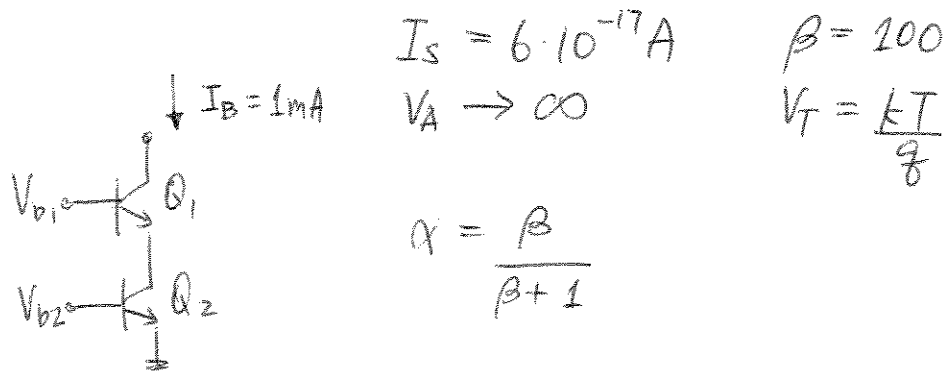 I_S = 6·10^-17 A
β = 100
I_B = 1mA
V_A → ∞
V_T = kT/q
V_b1
Q_1
α = β/(β + 1)
V_b2
Q_2